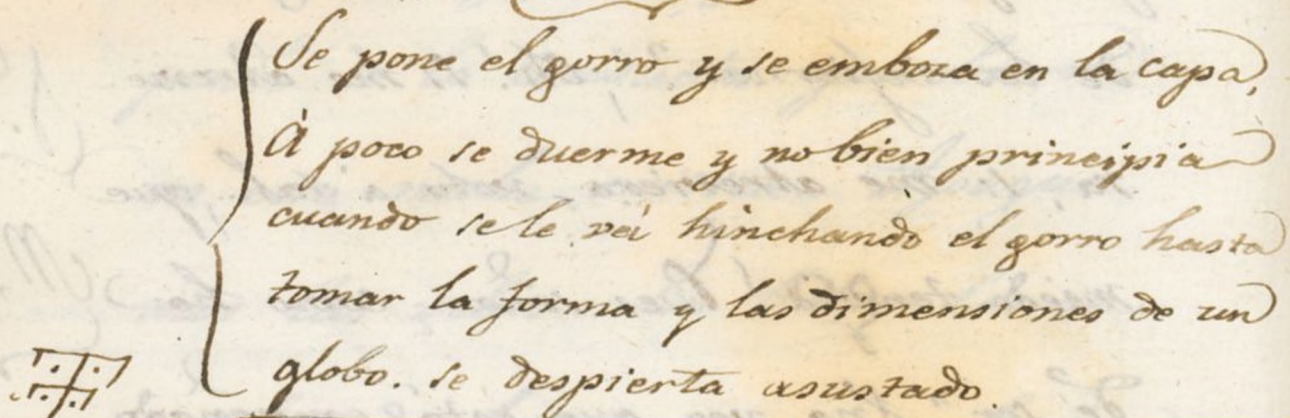 Se pone el gorro y se emboza en la capa,
Á poco se duerme y no bien principia
cuando se le vá hinchando el gorro hasta
tomar la forma y las dimensiones de un
globo. se despierta asustado.